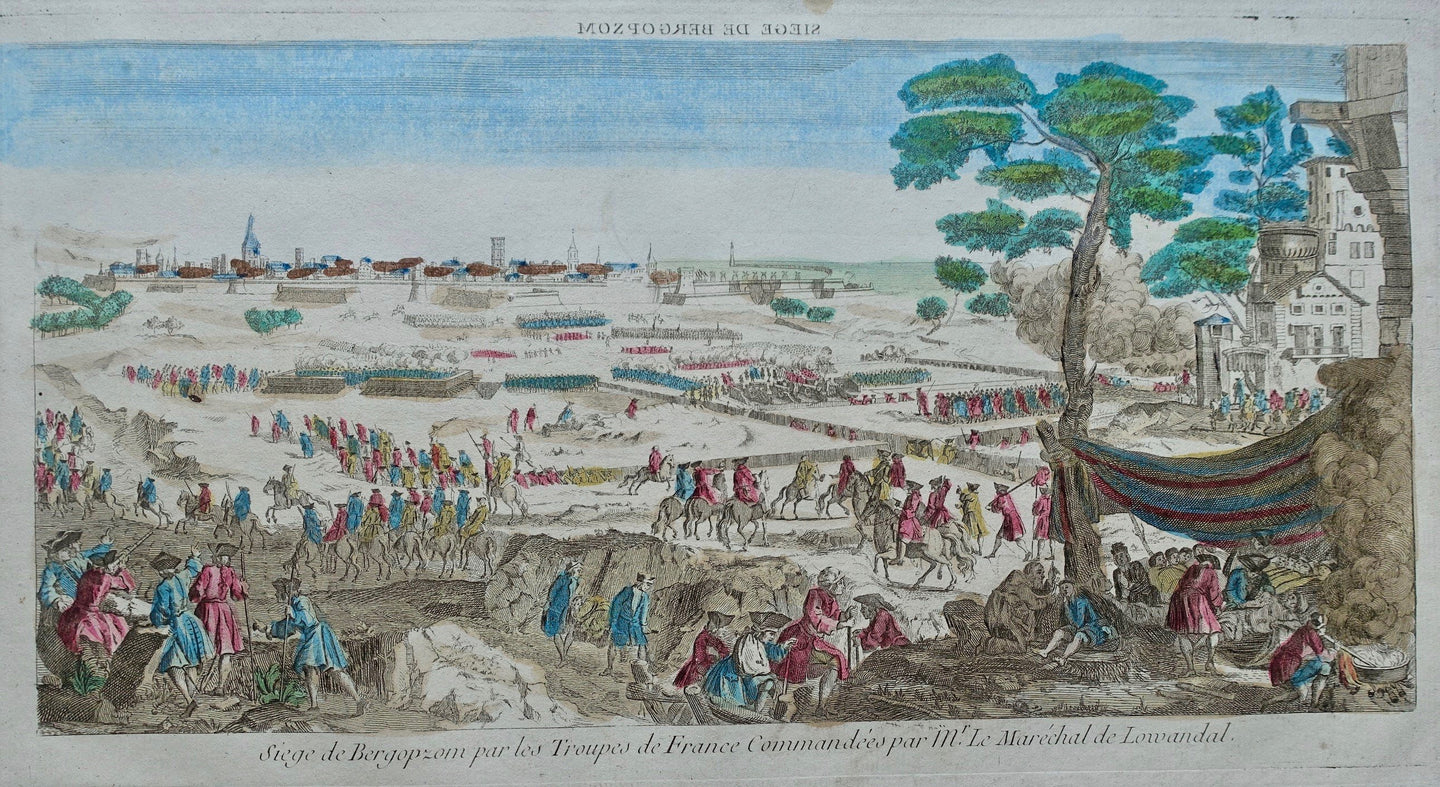 SIEGE DE BERGOPZOM
Siege de Bergopzom par les Troupes de France Commandées par Mr. Le Maréchal de Lowandal.